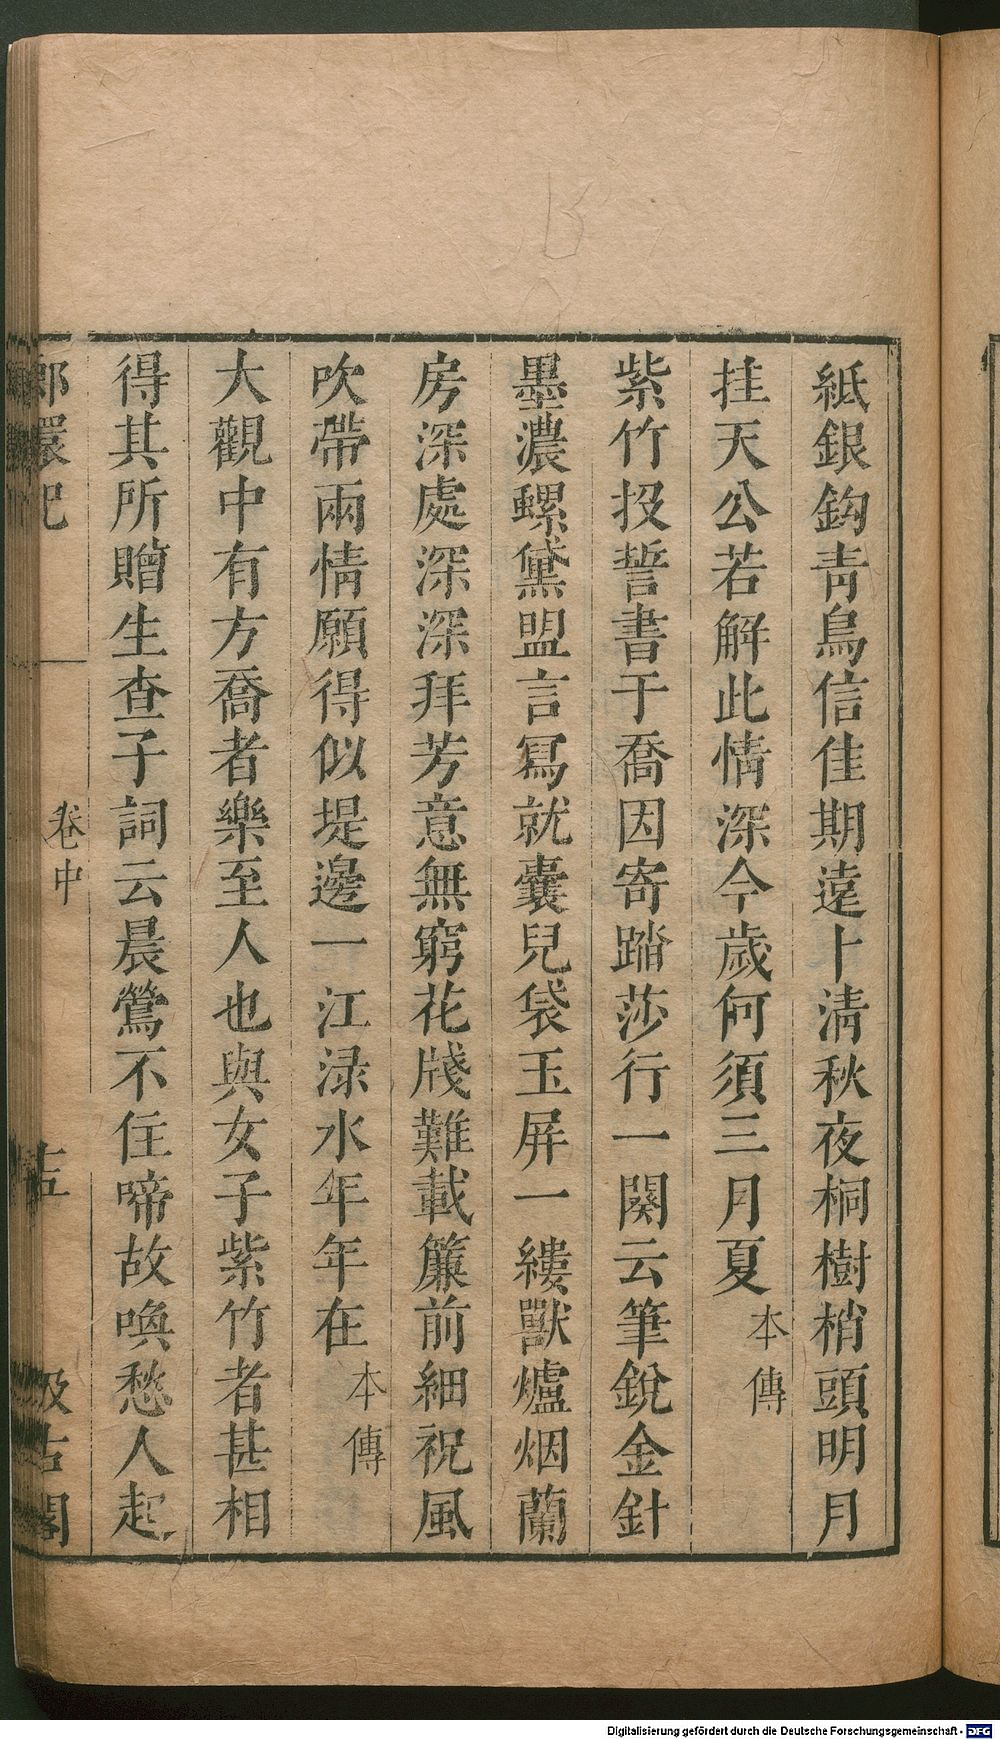 紙銀鈎青鳥信佳期遠卜清秋夜桐樹梢頭明月
挂天公若解此情深今歲何須三月夏本傳
紫竹投誓書于喬因寄踏莎行一闋云筆銳金針
墨濃螺黛盟言寫就囊兒袋玉屏一縷獸爐烟蘭
房深處深深拜芳意無窮花牋難載簾前細祝風
吹帶兩情願得似堤邊一江淥水年年在本傳
大觀中有方喬者樂至人也與女子紫竹者甚相
得其所贈生查子詞云晨鶯不住啼故喚愁人起
卷中
Digitalisierung gefördert durch die Deutsche Forschungsgemeinschaft - DFG